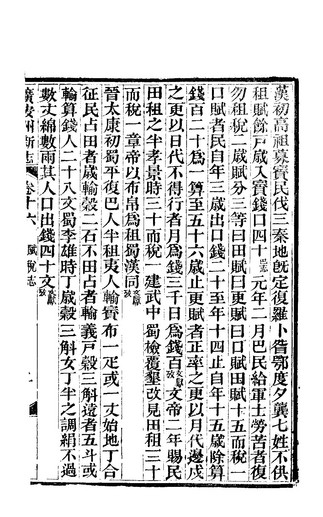 漢初高祖募賨民伐三秦地既定復羅卜昝鄂度夕龔七姓不供
租賦餘戶歲入賨錢口四十巴志元年二月巴民給軍士勞苦者復
勿租稅二歲賦分三等曰田賦曰更賦曰口賦田賦十五而稅一
口賦者民自年三歲出口錢二十至年十四止自年十五歲除算
錢百二十為一算至五十六歲止更賦者正率之更以月代邊戍
之更以日代不得行者月為錢三千日為錢百文獻攷文帝二年賜民
田租之半孝景時三十而稅一建武中蜀檢覆墾改見田租三十
而稅一章帝以布帛為租蜀漢同文獻攷
晉太康初蜀平復巴人半租夷人輸賨布一疋或一丈始地丁合
征民占田者歲輸穀二石不田占者輸義戶穀三斛遠者五斗或
輸算錢人二十八文蜀李雄時丁歲穀三斛女丁半之調絹不過
數丈綿數兩其人口出錢四十文文獻攷
廣安州新志 卷十六 賦稅志 一